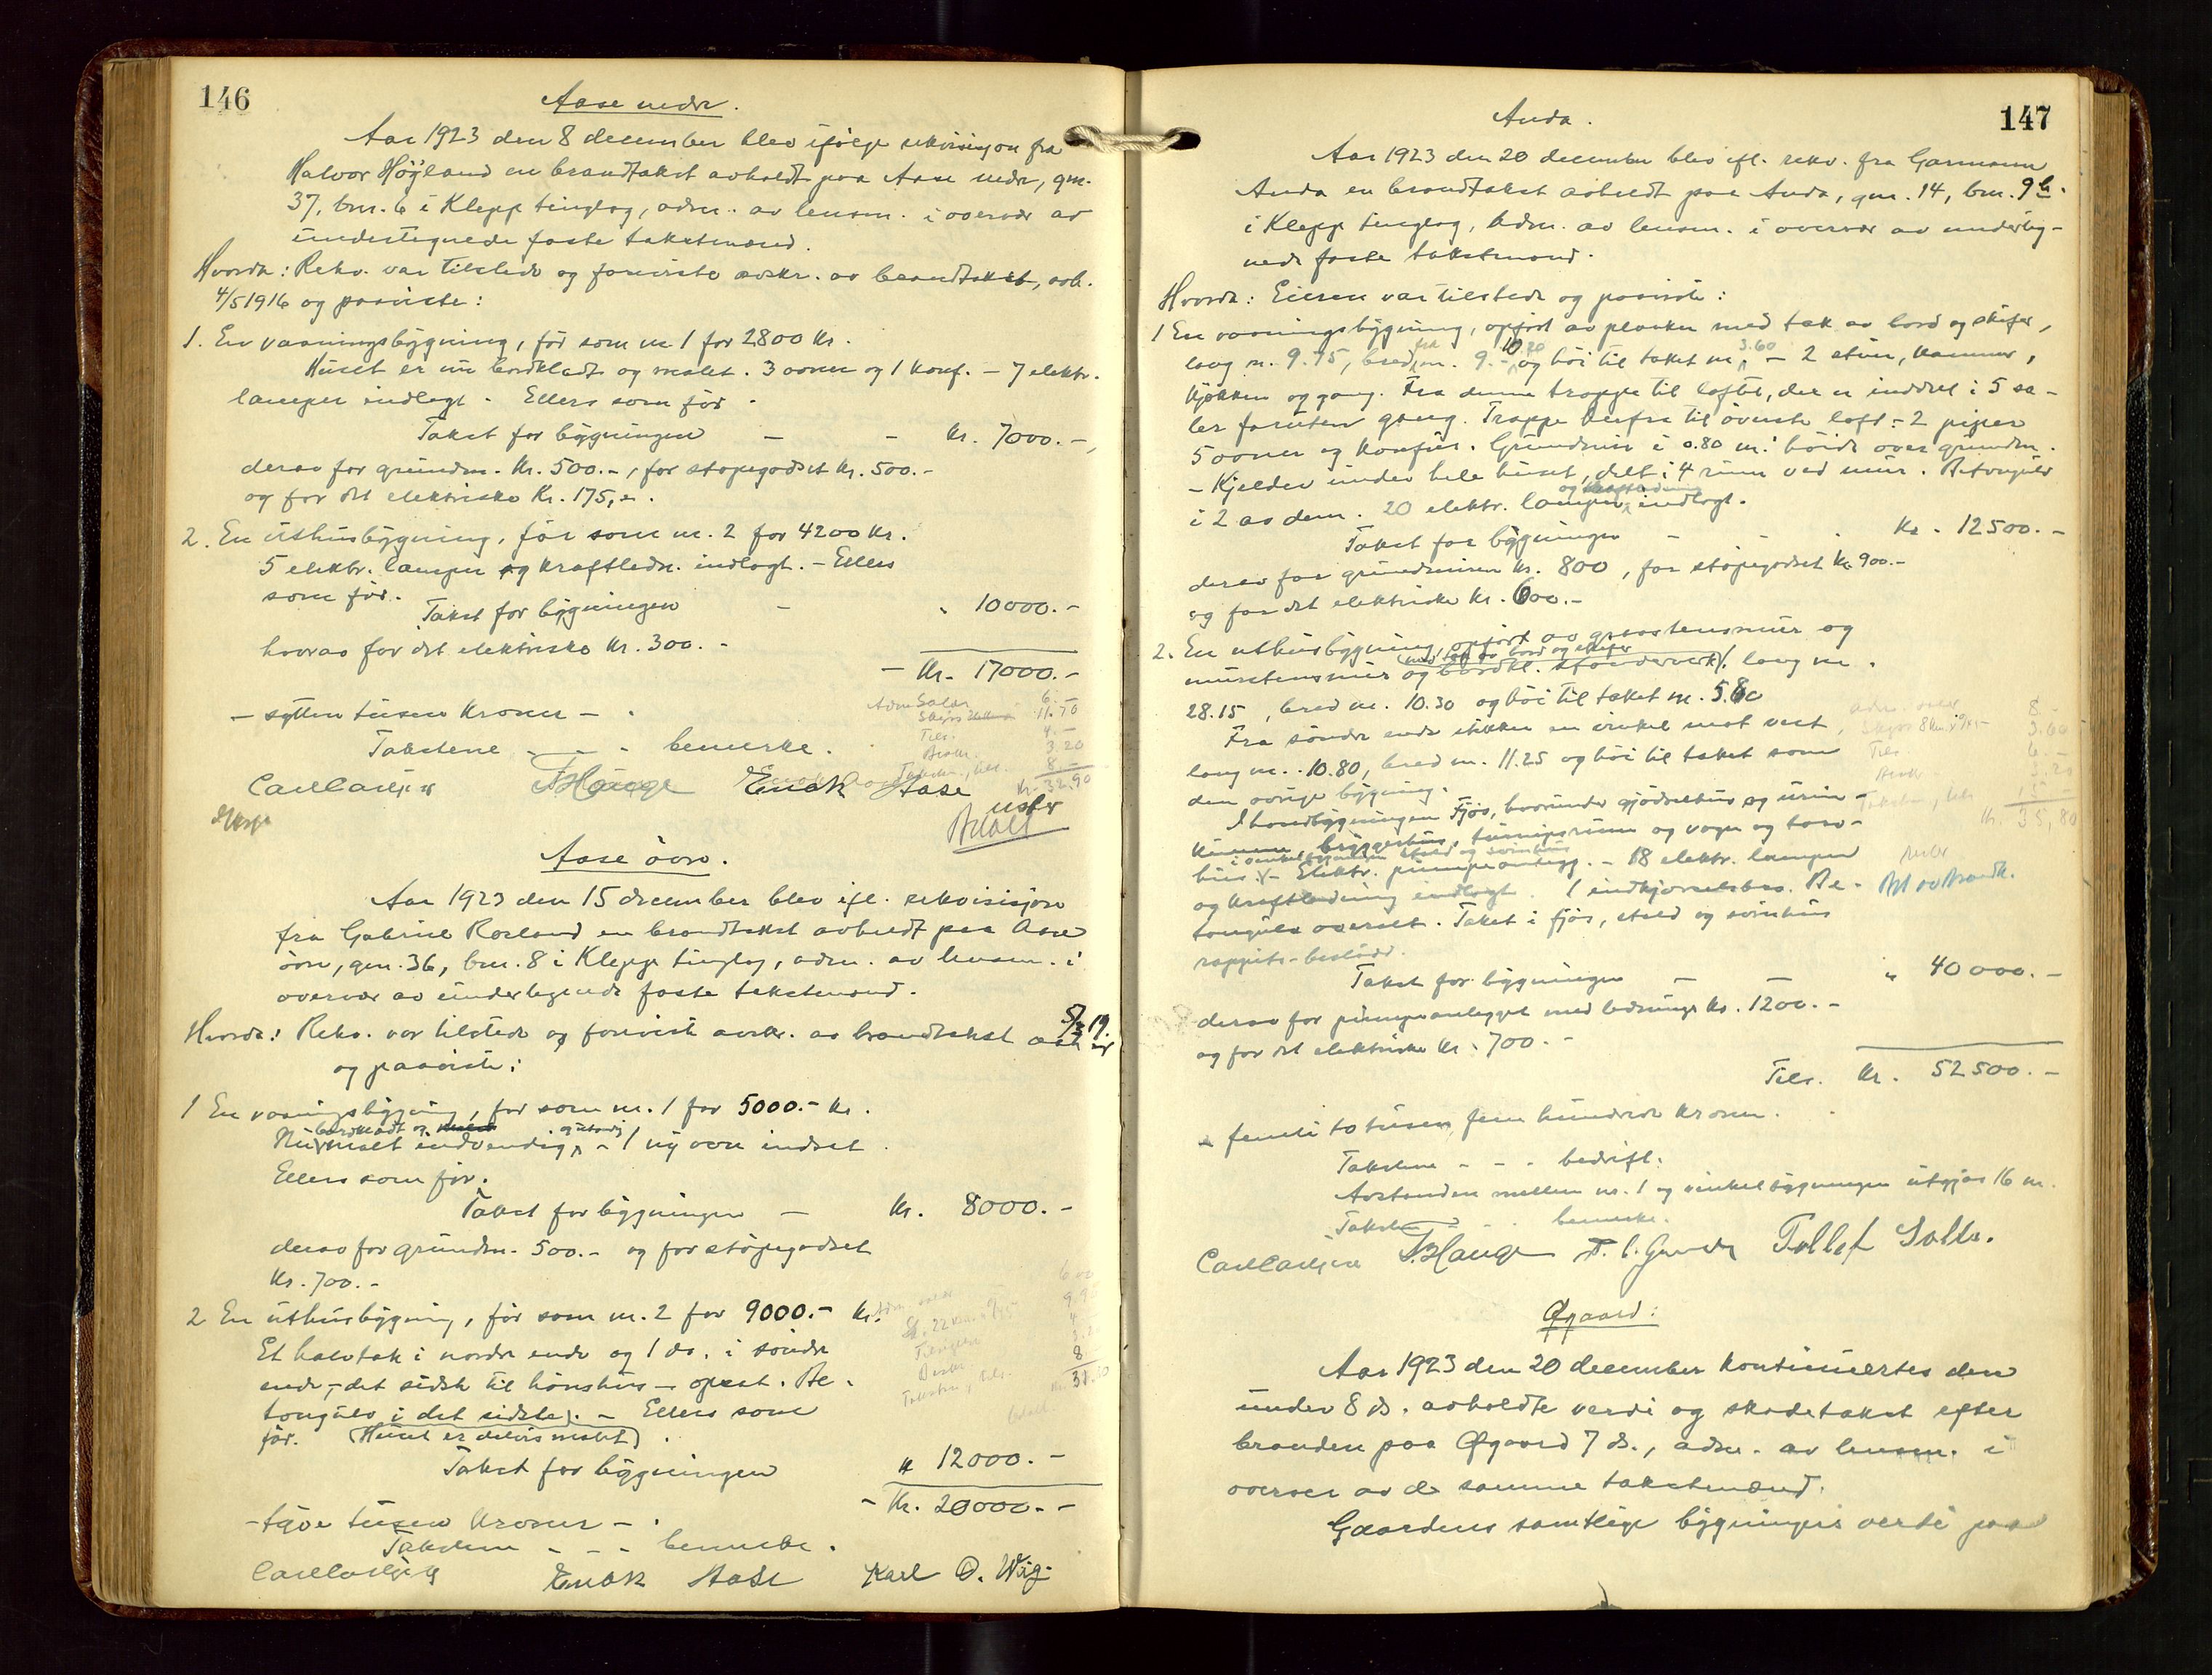 146
Aase nedre.
Aar 1923 den 8 december blev ifølge rekvisisjon fra
Halvor Höyland en brandtakst avholdt paa Aase nedre, gnr.
37, bnr. 6 i Klepp tinglag, adm. av lensm. i overvær av
undertegnede faste takstmænd.
Hvorda: Rekv. var tilstede og foreviste avskr. av brandtakst, avh.
4/5 1916 og paaviste:
1. En vaaningsbygning, før som nr 1 for 2800 kr.
Huset er nu bordklædt og malet. 3 ovner og 1 komf. - 7 elektr.
lamper indlagt. Ellers som før.
Takst for bygningen - - kr. 7000.-,
derav for grundm. kr. 500.-, for støpegodset kr. 500.-
og for det elektriske kr. 175,-.
2. En uthusbygning, før som nr. 2 for 4200 kr.
5 elektr. lamper og kraftledn. indlagt. - Ellers
som før.
Takst for bygningen - " 10000.-
hvorav for det elektriske kr. 300.-
- Kr. 17000.-
- sytten tusen kroner -
Adm. Salær 6.-
Skyss 11.70
Tils. 4.-
Avskr. 3.20
Takstm., tils. 8.-
Kr. 32.90
Takstene - - - bemerke.
Carl Carlsen T. Hauge Enok Aase
Aase övre.
Aar 1923 den 15 december blev ifl. rekvisisjon
fra Gabriel Rosland en brandtakst avholdt paa Aase
övre, gnr. 36, bnr. 8 i Klepp tinglag, adm. av lensm. i
overvær av undertegnede faste takstmænd.
Hvorda: Rekv. var tilstede og foreviste avskr. av brandtakst avh
og paaviste:
1 En vaaningsbygning, før som nr. 1 for 5000.- kr.
bordklædt og og utvendig
Nu malet indvendig, - 1 ny ovn indsat
Ellers som før.
Takst for bygningen - kr. 8000.-
derav for grundm. 500.- og for støpegodset
kr. 700.-
2 En uthusbygning, før som nr. 2 for 9000.- kr.
Et halvtak i nordre ende og 1 do. i søndre
ende, - det sidste til hønsehus - opsat. Be-
tongulv i det sidste. - Ellers som
før. (Huset er delvis malet).
Takst for bygningen " 12000.-
- Kr. 20000.-
- tyve tusen kroner -
Takstene - - - bemerke.
Carl Carlsen Enok Aase Karl O. Wiig.
147
Anda.
Aar 1923 den 20 december blev ifl. rekv. fra Garmann
Anda en brandtakst avholdt paa Anda, gnr. 14, bnr. 9 b.
i Klepp tinglag, adm. av lensm. i overvær av underteg-
nede faste takstmænd.
Hvorda: Eieren var tilstede og paaviste:
1 En vaaningsbygning, opført av planker med tak av bord og skifer,
lang m. 9.75, bred fra m. 9.- 10.20 og høi til taket m. 3.60 - 2 stuer, kammer,
kjøkken og gang. Fra denne trappe til loftet, der er inddelt i 5 sa-
ler foruten gang. Trappe derfra til øverste loft. - 2 piper
5 ovner og komfur. Grundmur i 0.80 m. høide over grunden.
- Kjelder under hele huset, delt i 4 rum ved mur. Betongulv
i 2 av dem. 20 elektr. lamper indlagt.
Takst for bygningen - - kr. 12500.-
derav for grundmuren kr. 800, for støpegodset kr. 900.-
og for det elektriske kr. 600.-
2. En uthusbygning, opført av graastensmur og
med tak av bord og skifer
murstensmur og bordkl. stenderverk, lang m.
28.15, bred m. 10.30 og høi til taket m. 5.80
Fra søndre ende stikker en vinkel mot vest,
lang m. 10.80, bred m. 11.25 og høi til taket som
den øvrige bygning.
I hovedbygningen fjøs, hvorunder gjødselhus og urin-
kumme, bryggerhus, turnipsrum og vogn og torv-
i vinkelbygningen stald og svinhus
hus. - Elektr. pumpeanlegg. - 18 elektr. lamper
og kraftledning indlagt. 1 indkjørselsbro. Be-
tongulv overalt. Taket i fjøs, stald og svinhus
rappets-beslått.
Kr. 35,80
Takst for bygningen - - " 40000.-
derav for pumpeanlegget med ledninger kr. 1200.-
og for det elektriske kr. 700.-
Tils. kr. 52500.-
- femti to tusen, fem hundrede kroner.
Takstene - - - bedrift.
Avstanden mellem nr. 1 og vinkelbygningen utgjør 16 m.
Takstene - - bemerke.
Carl Carlsen T. Hauge Tollef Salte.
Øgaard:
Aar 1923 den 20 december kontinuertes den
under 8 ds. avholdte verdi og skadetakst efter
branden paa Øgaard 7 ds., adm. av lensm. i
overvær av de samme takstmænd.
Gaardens samtlige bygningers verdi paa